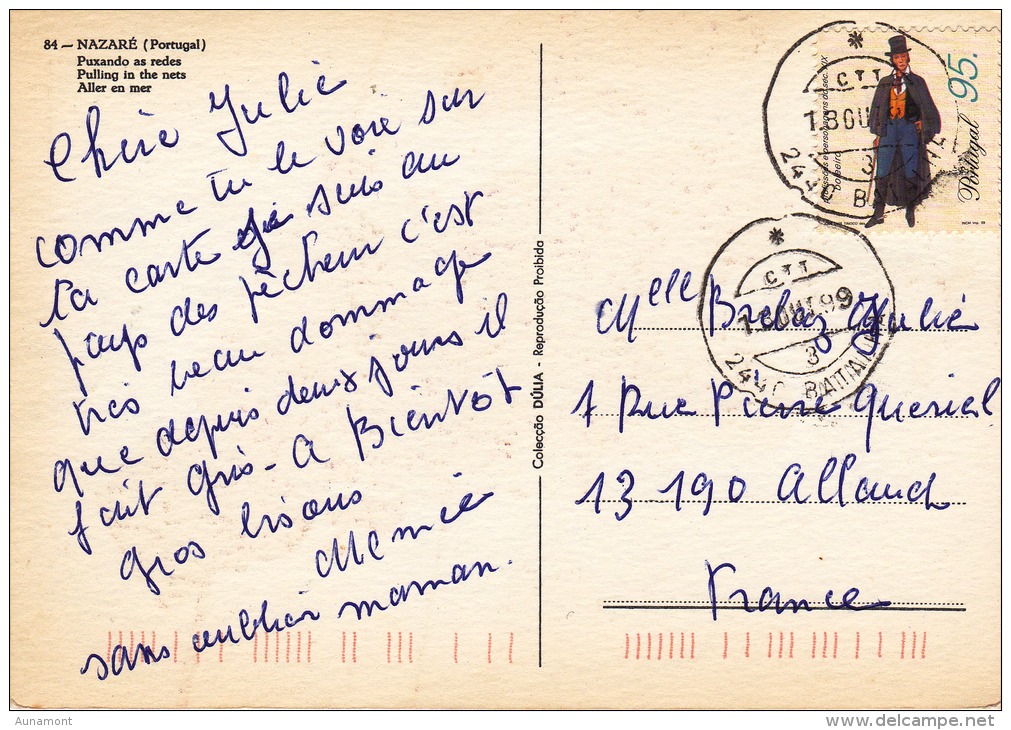 84 — NAZARÉ (Portugal)
Puxando as redes
Pulling in the nets
Aller en mer
Chère Julie
comme tu le vois sur
la carte je suis au
pays des pêcheur c'est
très beau dommage
que depuis deux jours il
fait gris - A Bientôt
gros bisous
Memie
sans oublier maman.
Colecção DÚLIA - Reprodução Proibida
CTT
2440 BATALHA
3
95.
Portugal
boleeiro
CTT
OUT 99
3
2440 BATALHA
Mlle Julie
1 Rue Pierre Queirel
13 190 Allauch
France
Aunamont
delcampe.net